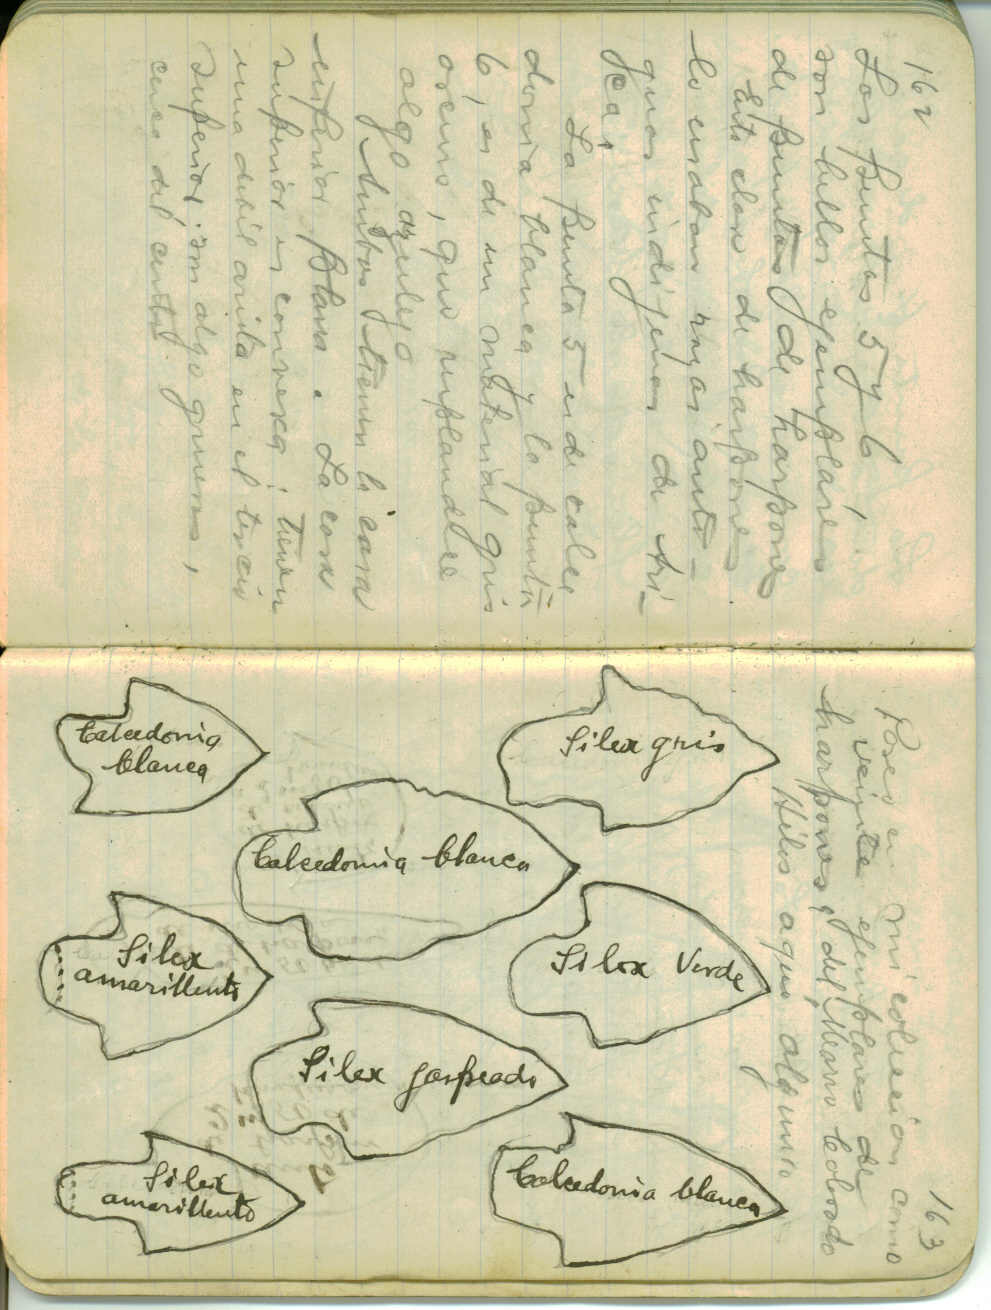 162
Las puntas 5 y 6,
son bellos ejemplares
de puntas de harpones
Esta clase de harpones
lo usaban razas anti-
guas indigenas de Afri-
ca.
La punta 5 es de calce
donia blanca y la punta
6, es de un material gris
oscuro, que resplandece
algo azulejo
Ambas tienen la cara
inferior plana. La cara
superior es convexa; tienen
una debil arista en el tercio
superior; son algo gruesas,
cerca del centro.
163
Poseo en mi coleccion como
veinte ejemplares de
harpones, del
Hélos aqui algunos
Calcedonia
blanca
Silex gris
Calcedonia blanca
Silex
amarillento
Silex Verde
Silex jaspeado
Silex
amarillento
Calcedonia blanca